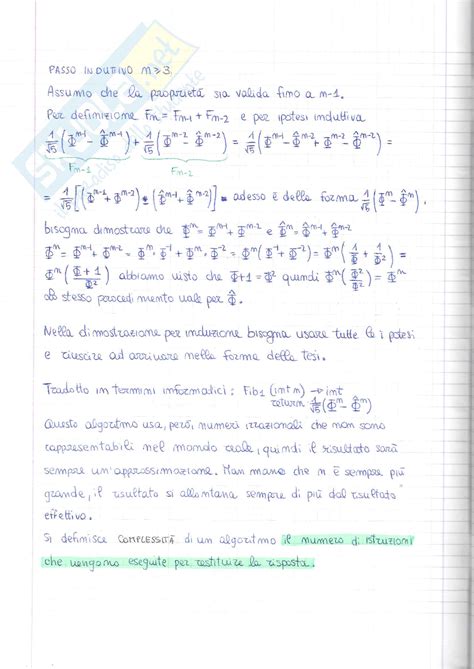 PASSO INDUTTIVO n ≥ 3
Assumo che la proprietà sia valida fino a n-1.
Per definizione Fn = Fn-1 + Fn-2 e per ipotesi induttiva
1/√5 (Φ^n-1 - Φ̂^n-1) + 1/√5 (Φ^n-2 - Φ̂^n-2) = 1/√5 (Φ^n-1 - Φ̂^n-1 + Φ^n-2 - Φ̂^n-2) =
Fn-1 Fn-2
= 1/√5 [(Φ^n-1 + Φ^n-2) - (Φ̂^n-1 + Φ̂^n-2)] = adesso è della forma 1/√5 (Φ^n - Φ̂^n).
bisogna dimostrare che Φ^n = Φ^n-1 + Φ^n-2 e Φ̂^n = Φ̂^n-1 + Φ̂^n-2
Φ^n = Φ^n-1 + Φ^n-2 = Φ^n · Φ^-1 + Φ^n · Φ^-2 = Φ^n (Φ^-1 + Φ^-2) = Φ^n (1/Φ + 1/Φ²) =
Φ^n (Φ+1/Φ²) abbiamo visto che Φ+1 = Φ² quindi Φ^n (Φ²/Φ²) = Φ^n
Lo stesso procedimento vale per Φ̂.
Nella dimostrazione per induzione bisogna usare tutte le ipotesi
e riuscire ad arrivare nella forma della tesi.
Tradotto in termini informatici: Fib1 (int n) → int
return 1/√5 (Φ^n - Φ̂^n)
Questo algoritmo usa, però, numeri irrazionali che non sono
rappresentabili nel mondo reale, quindi il risultato sarà
sempre un'approssimazione. Man mano che n è sempre più
grande, il risultato si allontana sempre di più dal risultato
effettivo.
Si definisce COMPLESSITÀ di un algoritmo il numero di istruzioni
che vengono eseguite per restituire la risposta.